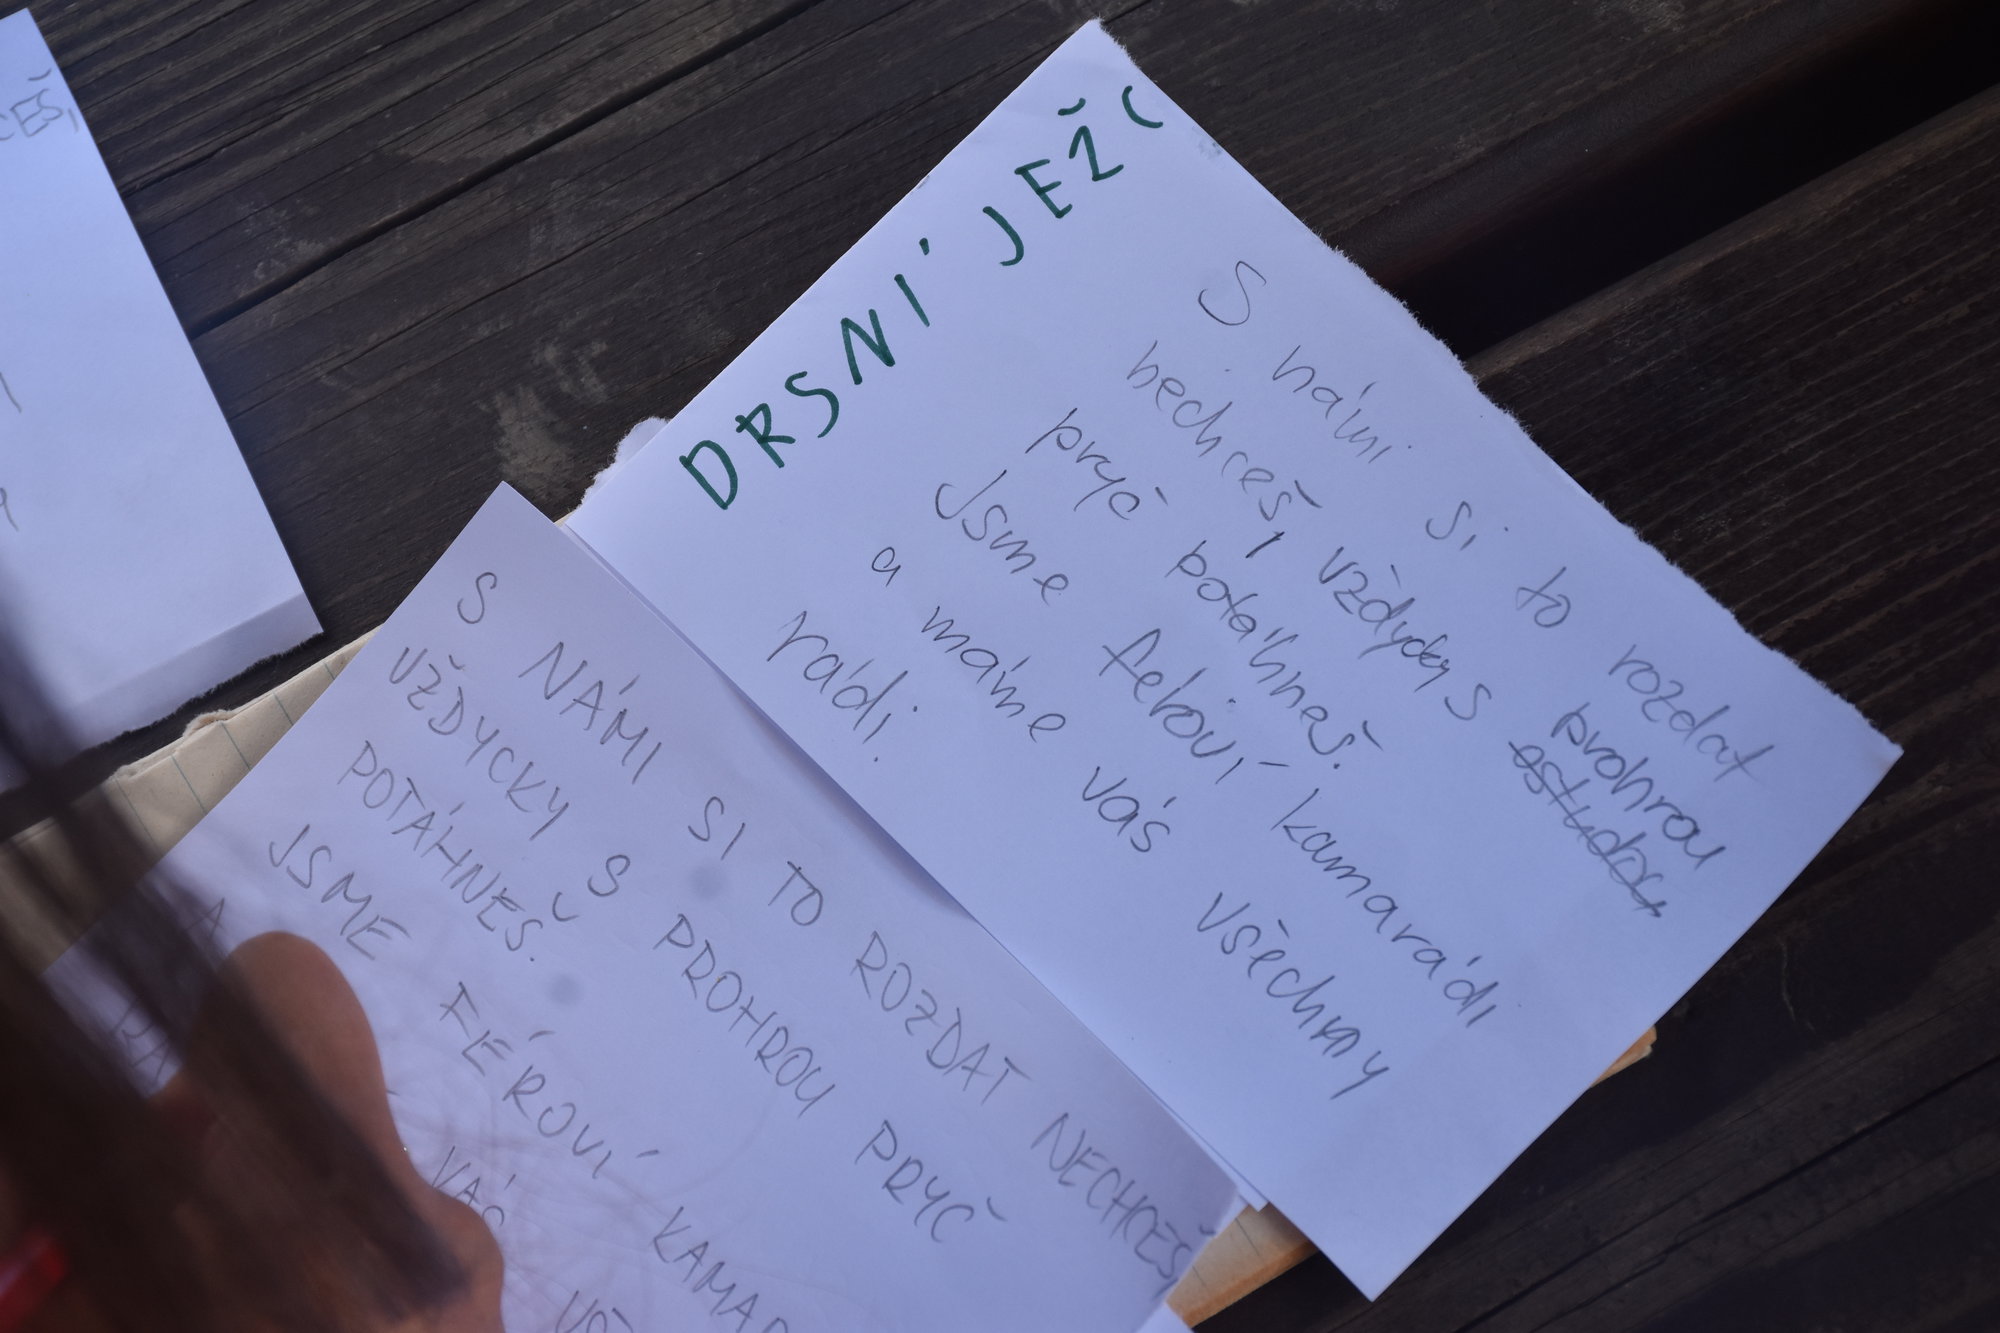 DRSNÍ JEŽC
S námi si to rozdat
nechceš, vždycky s prohrou
pryč potáhneš.
Jsme féroví kamarádi
a máme vás všechny
rádi.
S NÁMI SI TO ROZDAT NECHCEŠ,
VŽDYCKY S PROHROU PRYČ
POTÁHNEŠ.
JSME FÉROVÍ KAMARÁD
A VÁS